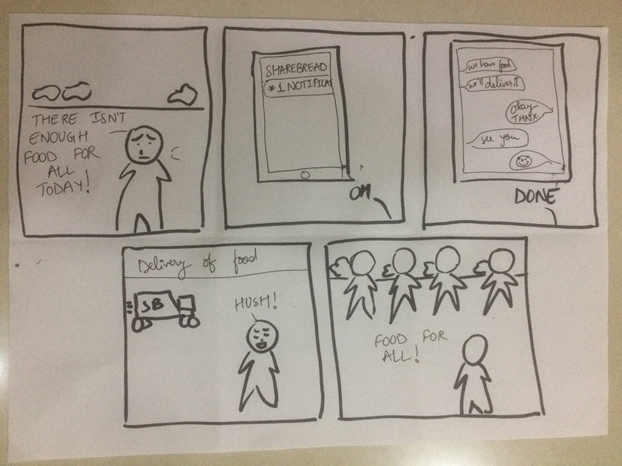 THERE ISN'T
ENOUGH
FOOD FOR
ALL
TODAY!
SHAREBREAD
* 1 NOTIFICA
OH
we have food
we'll deliver it
okay
THNX
see you
DONE
Delivery of food
SB
HUSH!
FOOD FOR
ALL!